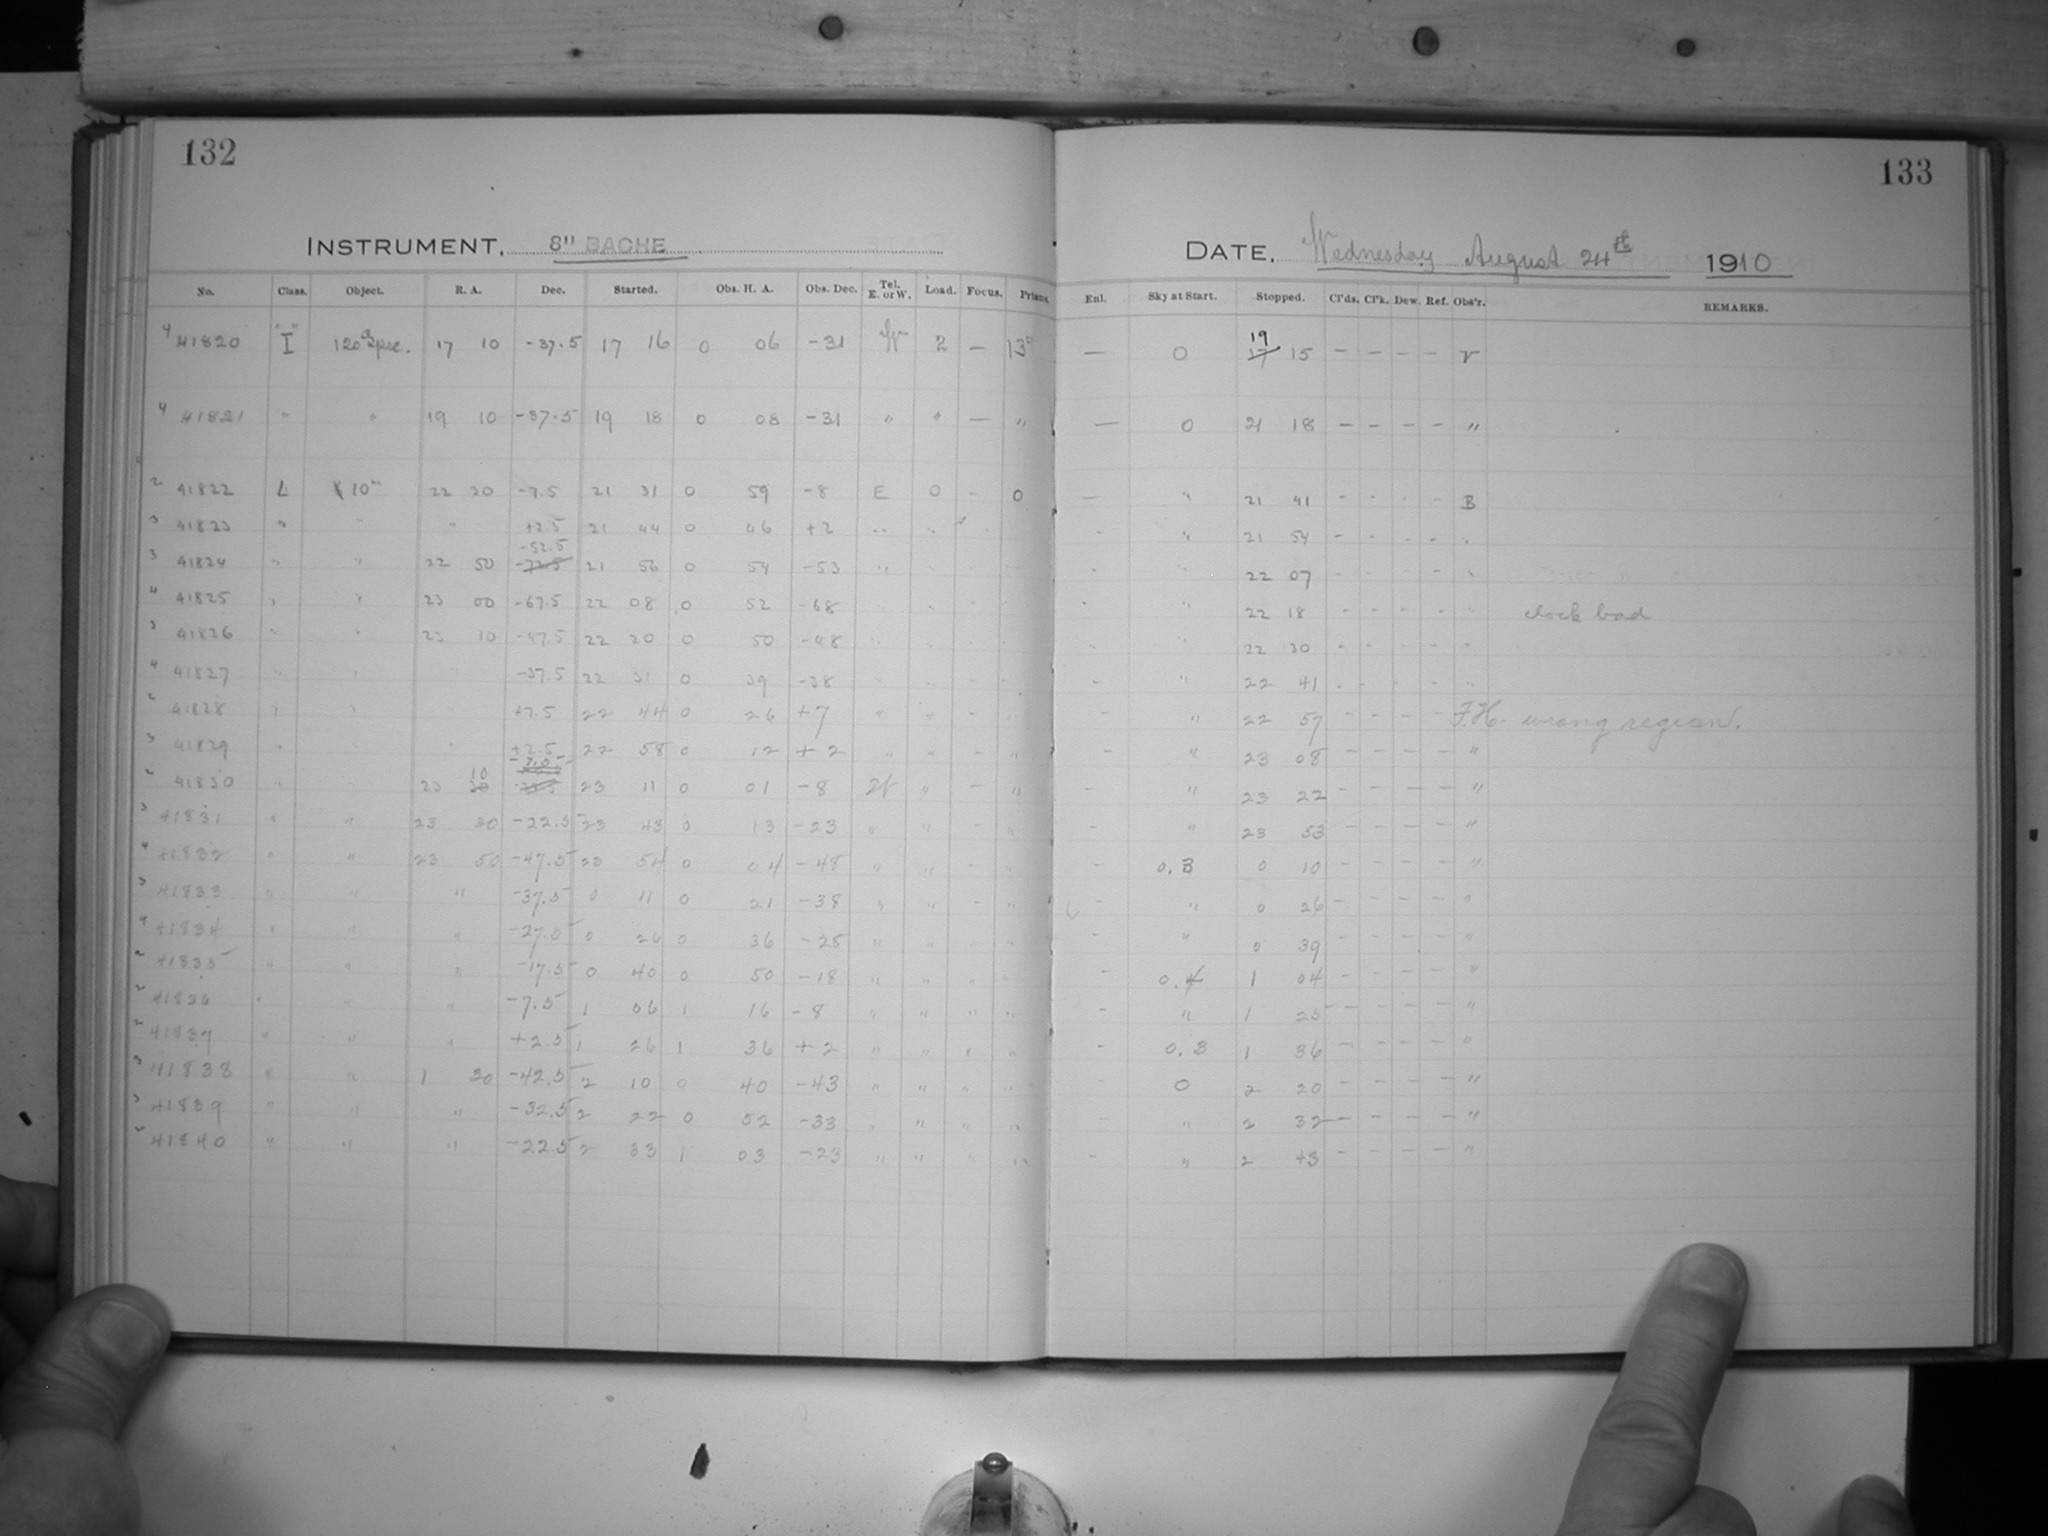 132
133
INSTRUMENT, 8" BACHE
DATE, Wednesday August 24th 1910
No. Class. Object. R. A. Dec. Started. Obs. H. A. Obs. Dec. Tel. E. or W. Load. Focus. Prisms. Enl. Sky at Start. Stopped. Cl'ds. Cl'k. Dew. Ref. Obs'r. REMARKS.
4 41820 I 120m Spec. 17 10 -37.5 17 16 0 06 -31 W 2 — — 0 19 15 - - - -
4 41821 " " 19 10 -37.5 19 18 0 08 -31 " " — " — 0 21 18 - - - - "
2 41822 L 10m 22 30 -7.5 21 31 0 59 -8 E 0 - 0 — " 21 41 - - - - B
3 41823 " " " +2.5 21 44 0 46 +2 " " - " 21 54 - - - - "
3 41824 " " 22 50 -52.5 21 56 0 54 -53 " " - " 22 07 - - - - "
4 41825 " " 23 00 -67.5 22 08 0 52 -68 " " - " 22 18 - - - - " clock bad
3 41826 " " 23 10 -47.5 22 20 0 50 -48 " " - " 22 30 - - - - "
4 41827 " " " -37.5 22 31 0 39 -38 " " - " 22 41 - - - - "
2 41828 " " " +7.5 22 44 0 26 +7 " " - " - " 22 57 F.H. wrong region.
3 41829 " " " +2.5 22 58 0 12 +2 " " - " - " 23 08 - - - - "
2 41830 " " 23 10 23 11 0 01 -8 W " - " - " 23 22 - - - - "
3 41831 " " 23 30 -22.5 23 43 0 13 -23 " " - " - " 23 53 - - - - "
4 41832 " " 23 50 -47.5 23 54 0 04 -48 " " - " - 0.3 0 10 - - - - "
3 41833 " " " -37.5 0 11 0 21 -38 " " - " - " 0 26 - - - - "
4 41834 " " " -27.5 0 26 0 36 -28 " " " " - " 0 39 - - - - "
2 41835 " " " -17.5 0 40 0 50 -18 " " " " - 0.4 1 04 - - - - "
2 41836 " " " -7.5 1 06 1 16 -8 " " " " - " 1 25 - - - - "
2 41837 " " " +2.5 1 26 1 36 +2 " " " " - 0.3 1 36 - - - - "
3 41838 " " 1 30 -42.5 2 10 0 40 -43 " " " " 0 2 20 - - - - "
3 41839 " " " -32.5 2 22 0 52 -33 " " " " - " 2 32 - - - - "
2 41840 " " " -22.5 2 33 1 03 -23 " " " " " 2 43 - - - - "